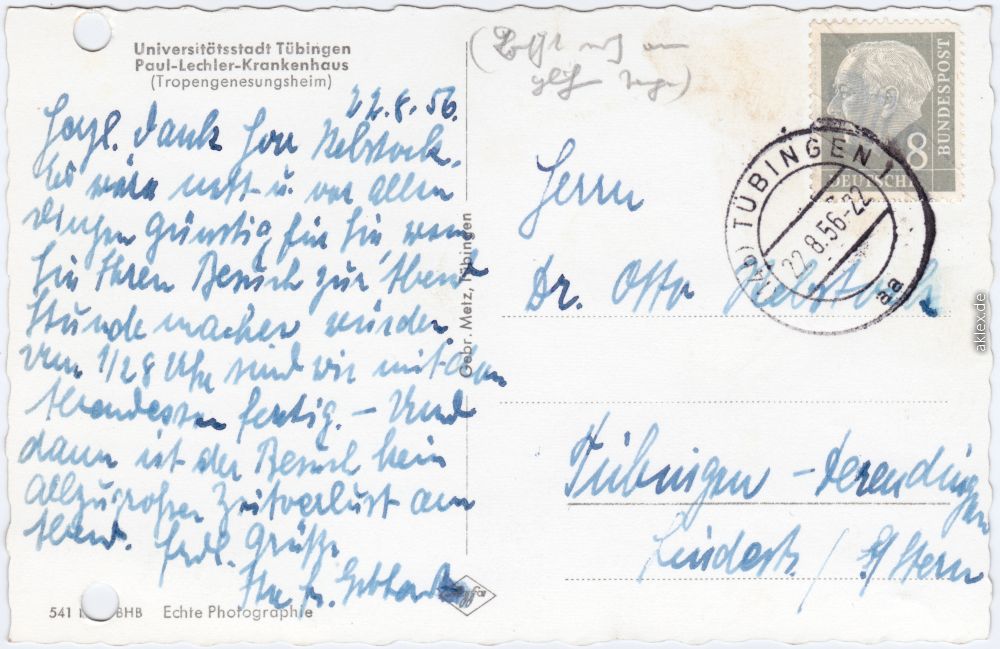 Universitätsstadt Tübingen
Paul-Lechler-Krankenhaus
(Tropengenesungsheim)
22.8.56.
Hzgl. Dank Herr Rebstock.
Es wäre nett u. vor allen
Dingen günstig für Sie wenn
Sie Ihren Besuch zur Abend
Stunde machen würden.
Um 1/2 8 Uhr sind wir mit dem
Abendessen fertig. – Und
dann ist der Besuch kein
allzugrosser Zeitverlust am
Abend. Frdl. Grüsse
Ihr
541 BHB Echte Photographie
Gebr. Metz, Tübingen
8
BUNDESPOST
DEUTSCHE
TÜBINGEN 1
22.8.56-22
aa
Herrn
Dr. Otto Rebstock
Tübingen - Derendingen
Lindenstr. / Stern
aklex.de